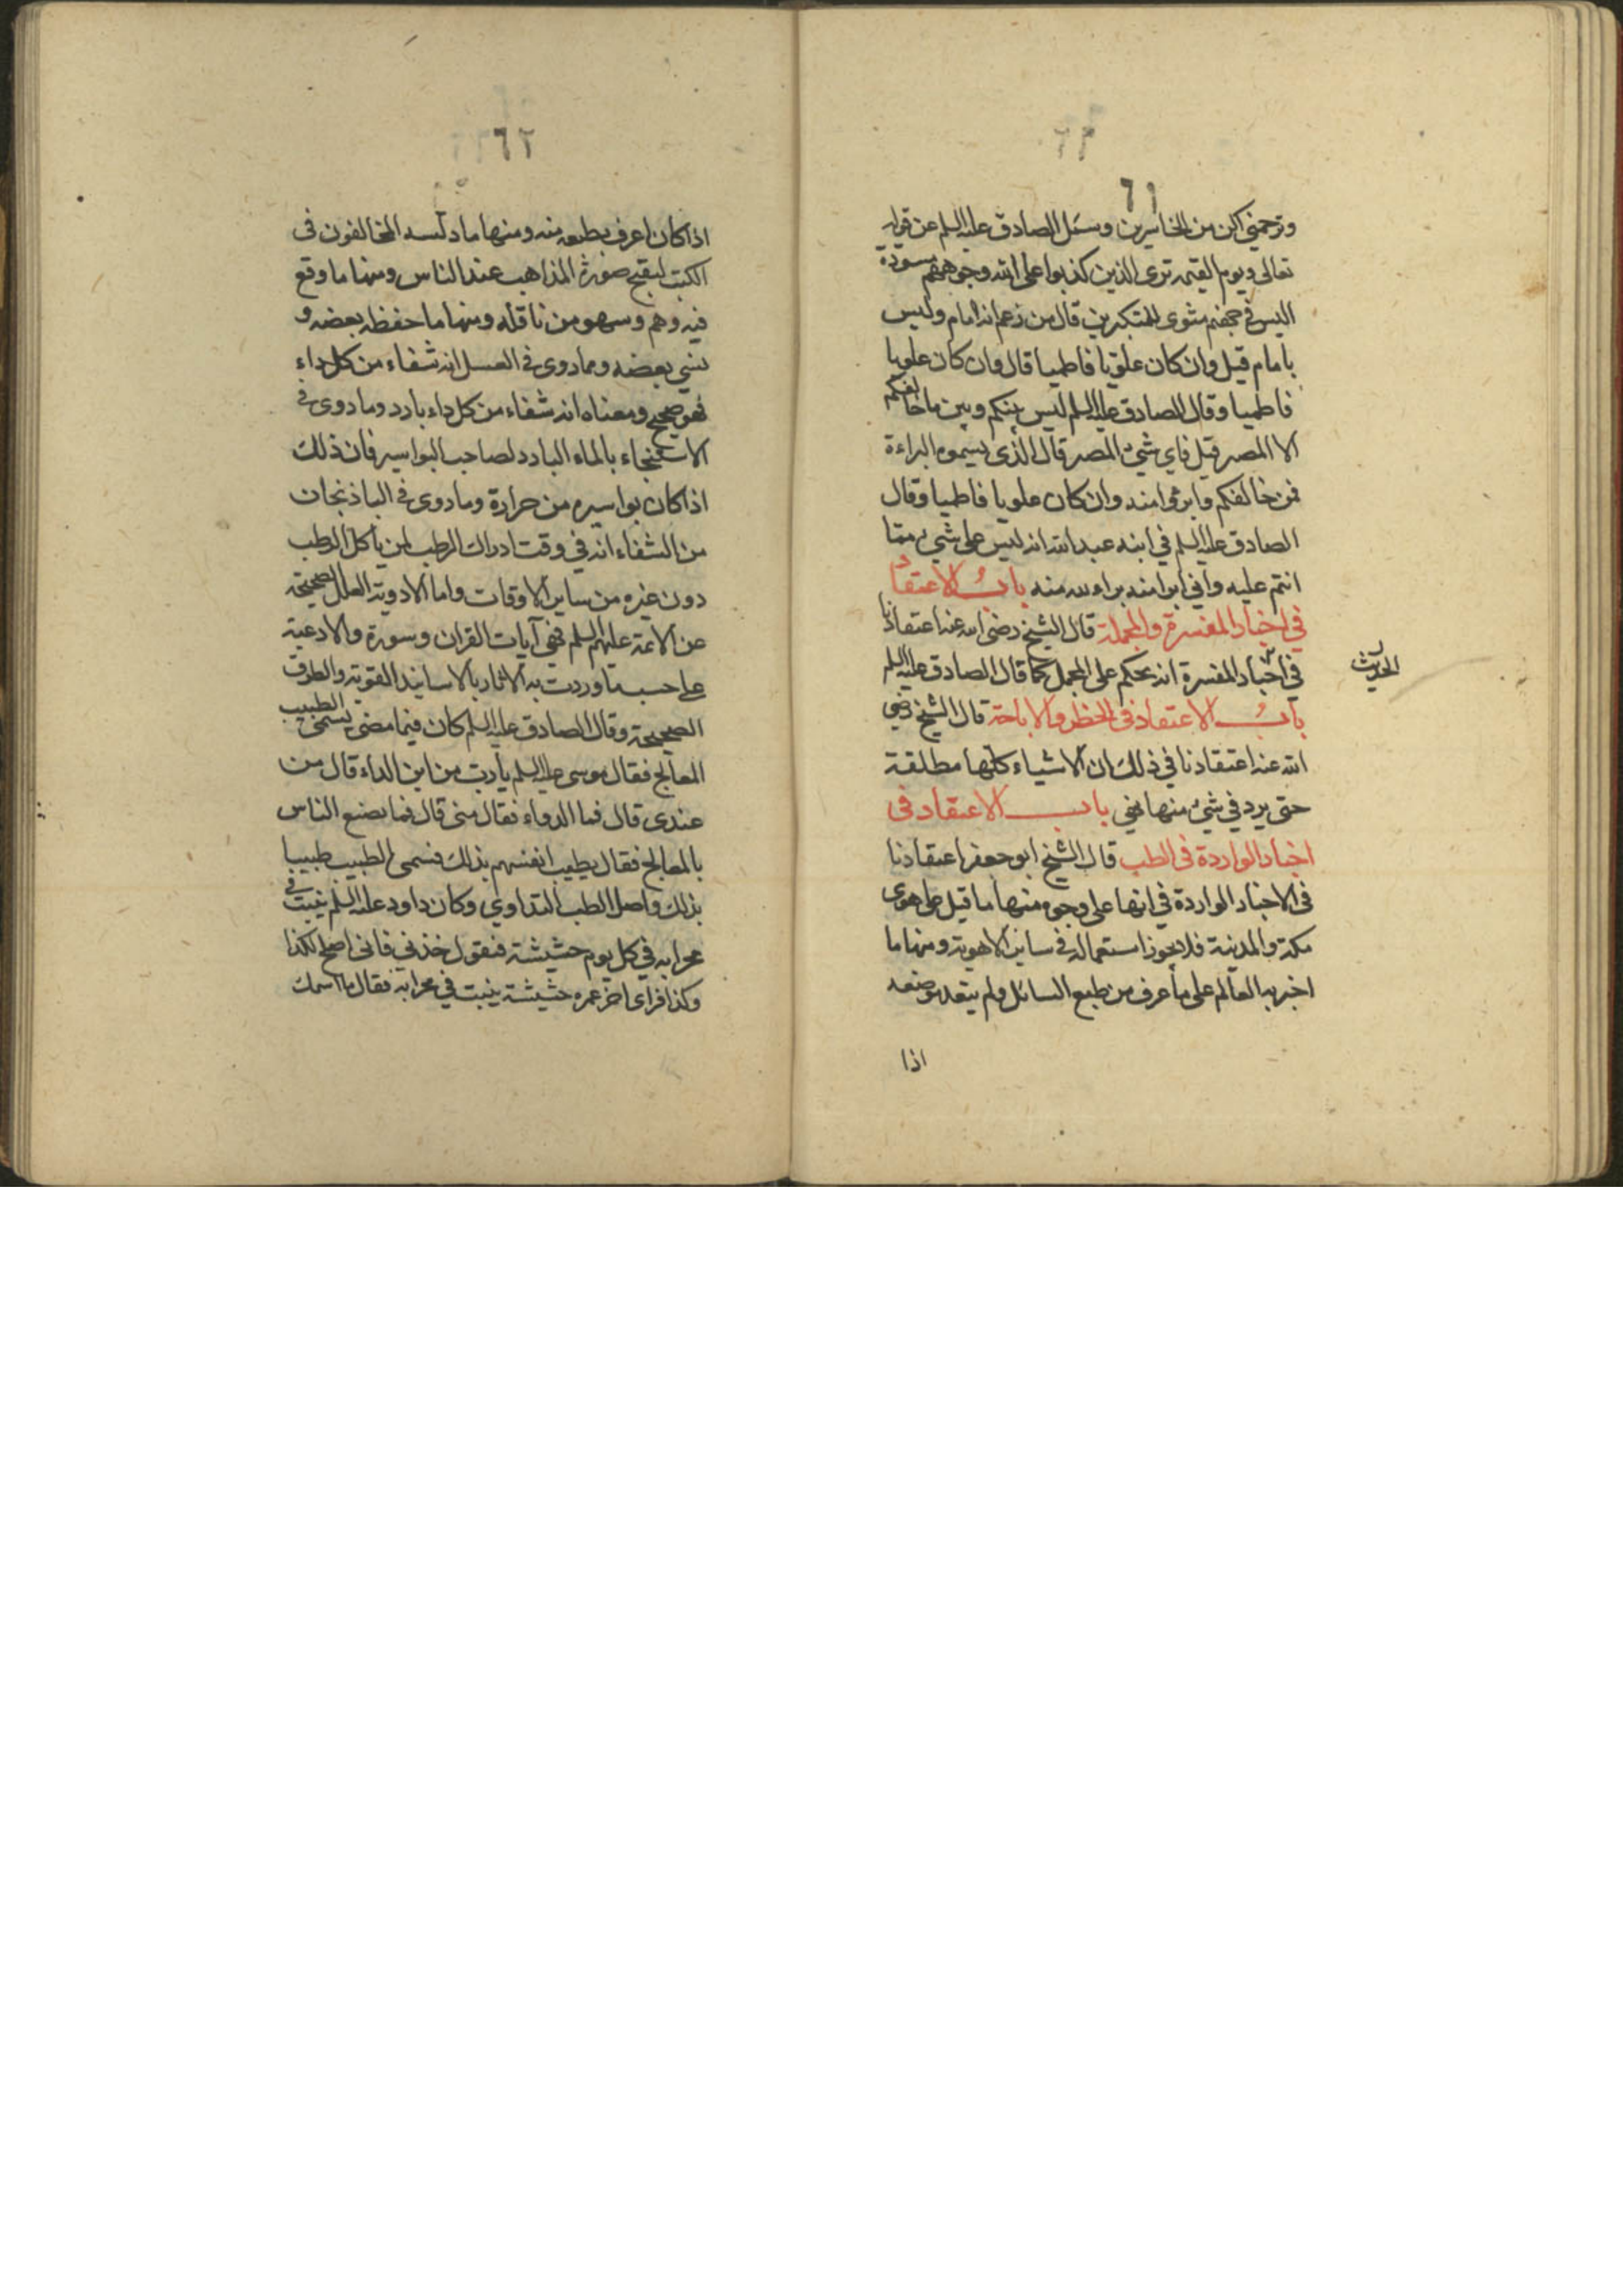 ٦١
وترحمني اكن من الخاسرين وسئل الصادق عليه السلم عن قوله
تعالى ويوم القيمة ترى الذين كذبوا على الله وجوههم مسودة
اليس في جهنم مثوى للمتكبرين قال من زعم انه امام وليس
بامام قيل وان كان علويا فاطميا قال وان كان علويا
فاطميا وقال الصادق عليه السلم ليس بينكم وبين ما خالفكم
الا المضمر قيل فاي شيء المضمر قال الذي يسموه البراءة
فمن خالفكم وابرءوا منه وان كان علويا فاطميا وقال
الصادق عليه السلم في ابنه عبد الله انه ليس على شيء مما
انتم عليه واني ابرا منه براء الله منه باب الاعتقاد
في اخبار المفسرة والمجملة قال الشيخ رضي الله عنه اعتقادنا
في اخبار المفسرة انه يحكم على المجمل كما قال الصادق عليه السلم
الحديث
باب الاعتقاد في الحظر والاباحة قال الشيخ رضي
الله عنه اعتقادنا في ذلك ان الاشياء كلها مطلقة
حتى يرد في شيء منها نهي باب الاعتقاد في
اخبار الواردة في الطب قال الشيخ ابو جعفر اعتقادنا
في الاخبار الواردة في انها على وجوه منها ما قيل على هوى
مكة والمدينة فلا يجوز استعماله في ساير الاهوية ومنها ما
اخبر به العالم على ما عرف من طبع السائل ولم يتعد موضعه
اذا
٦٢
اذا كان اعرف بطبعه منه ومنها ما دلسه المخالفون في
الكتب لتقبيح صورة المذاهب عند الناس ومنها ما وقع
فيه وهم وسهو من ناقله ومنها ما حفظ بعضه و
نسي بعضه وما روى في العسل انه شفاء من كل داء
فهو صحيح ومعناه انه شفاء من كل داء بارد وما روى في
الاستنجاء بالماء البارد لصاحب البواسير فان ذلك
اذا كان بواسيره من حرارة وما روى في الباذنجان
من الشفاء انه في وقت ادراك الرطب لمن يأكل الرطب
دون غيره من ساير الاوقات واما الادوية العلل الصحيحة
عن الائمة عليهم السلم فهي آيات القران وسورة والادعية
على حسب ما وردت به الاثار بالاسانيد القوية والطرق
الصحيحة وقال الصادق عليه السلم كان فيما مضى يسمى الطبيب
المعالج فقال موسى عليه السلم يا رب من اين الداء قال من
عندي قال فما الدواء فقال مني قال فما يصنع الناس
بالمعالج فقال يطيب انفسهم بذلك فسمى الطبيب طبيبا
بذلك واصل الطب التداوي وكان داود عليه السلم ينبت في
محرابه في كل يوم حشيشة فتقول خذني فاني اصلح لكذا
وكذا فراى اخر عمره حشيشة ينبت في محرابه فقال ما اسمك